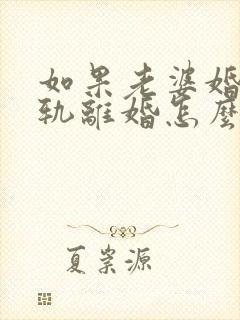 如果老婆婚
轨離婚怎麼
夏崇源